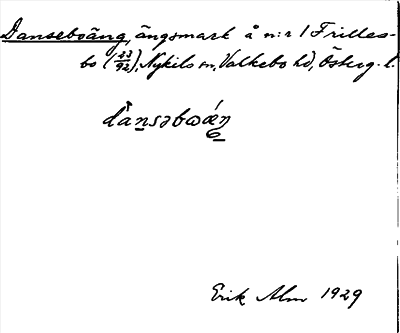 Danseboäng, ängsmark å n:r 1 Frilles-
bo (23/92), Nykils sn, Valkebo hd, Österg. l.
dànsəbωǽŋ
Erik Alm 1929